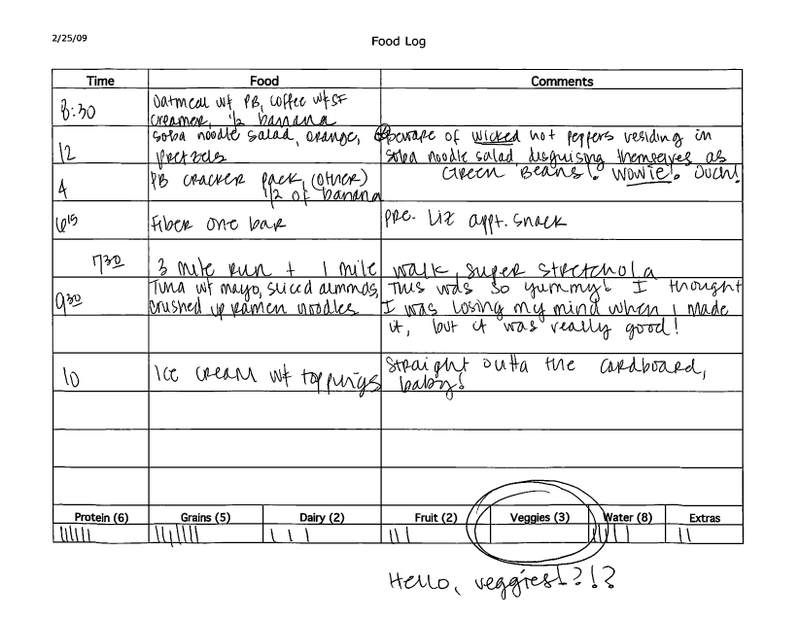 2/25/09
Food Log
Time Food Comments
8:30 Oatmeal w/ PB, coffee w/ SF
creamer, 1/2 banana
12 Soba noodle salad, orange, beware of wicked hot peppers residing in
pretzels soba noodle salad, disguising themselves as
Green Beans! Wowie! Ouch!
4 PB cracker pack, (other)
1/2 of banana
6 15 Fiber One bar pre. Liz appt. snack
7 30 3 mile run + 1 mile walk, super stretchola
9 30 Tuna w/ mayo, sliced almonds, This was so yummy! I thought
crushed up ramen noodles I was losing my mind when I made
it, but it was really good!
10 Ice cream w/ toppings Straight outta the cardboard,
baby!
Protein (6) Grains (5) Dairy (2) Fruit (2) Veggies (3) Water (8) Extras
Hello, veggies!?!?